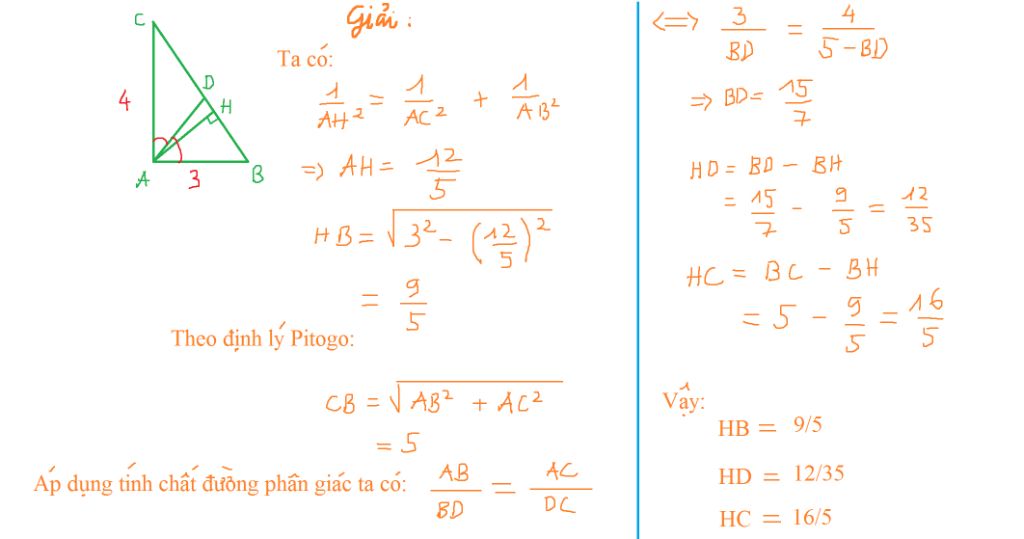 Giải:
C
D
4
H
A
3
B
Ta có:
1/AH² = 1/AC² + 1/AB²
=> AH = 12/5
HB = √(3² - (12/5)²)
= 9/5
Theo định lý Pitogo:
CB = √(AB² + AC²)
= 5
Áp dụng tính chất đường phân giác ta có: AB/BD = AC/DC
<=> 3/BD = 4/(5-BD)
=> BD = 15/7
HD = BD - BH
= 15/7 - 9/5 = 12/35
HC = BC - BH
= 5 - 9/5 = 16/5
Vậy:
HB = 9/5
HD = 12/35
HC = 16/5